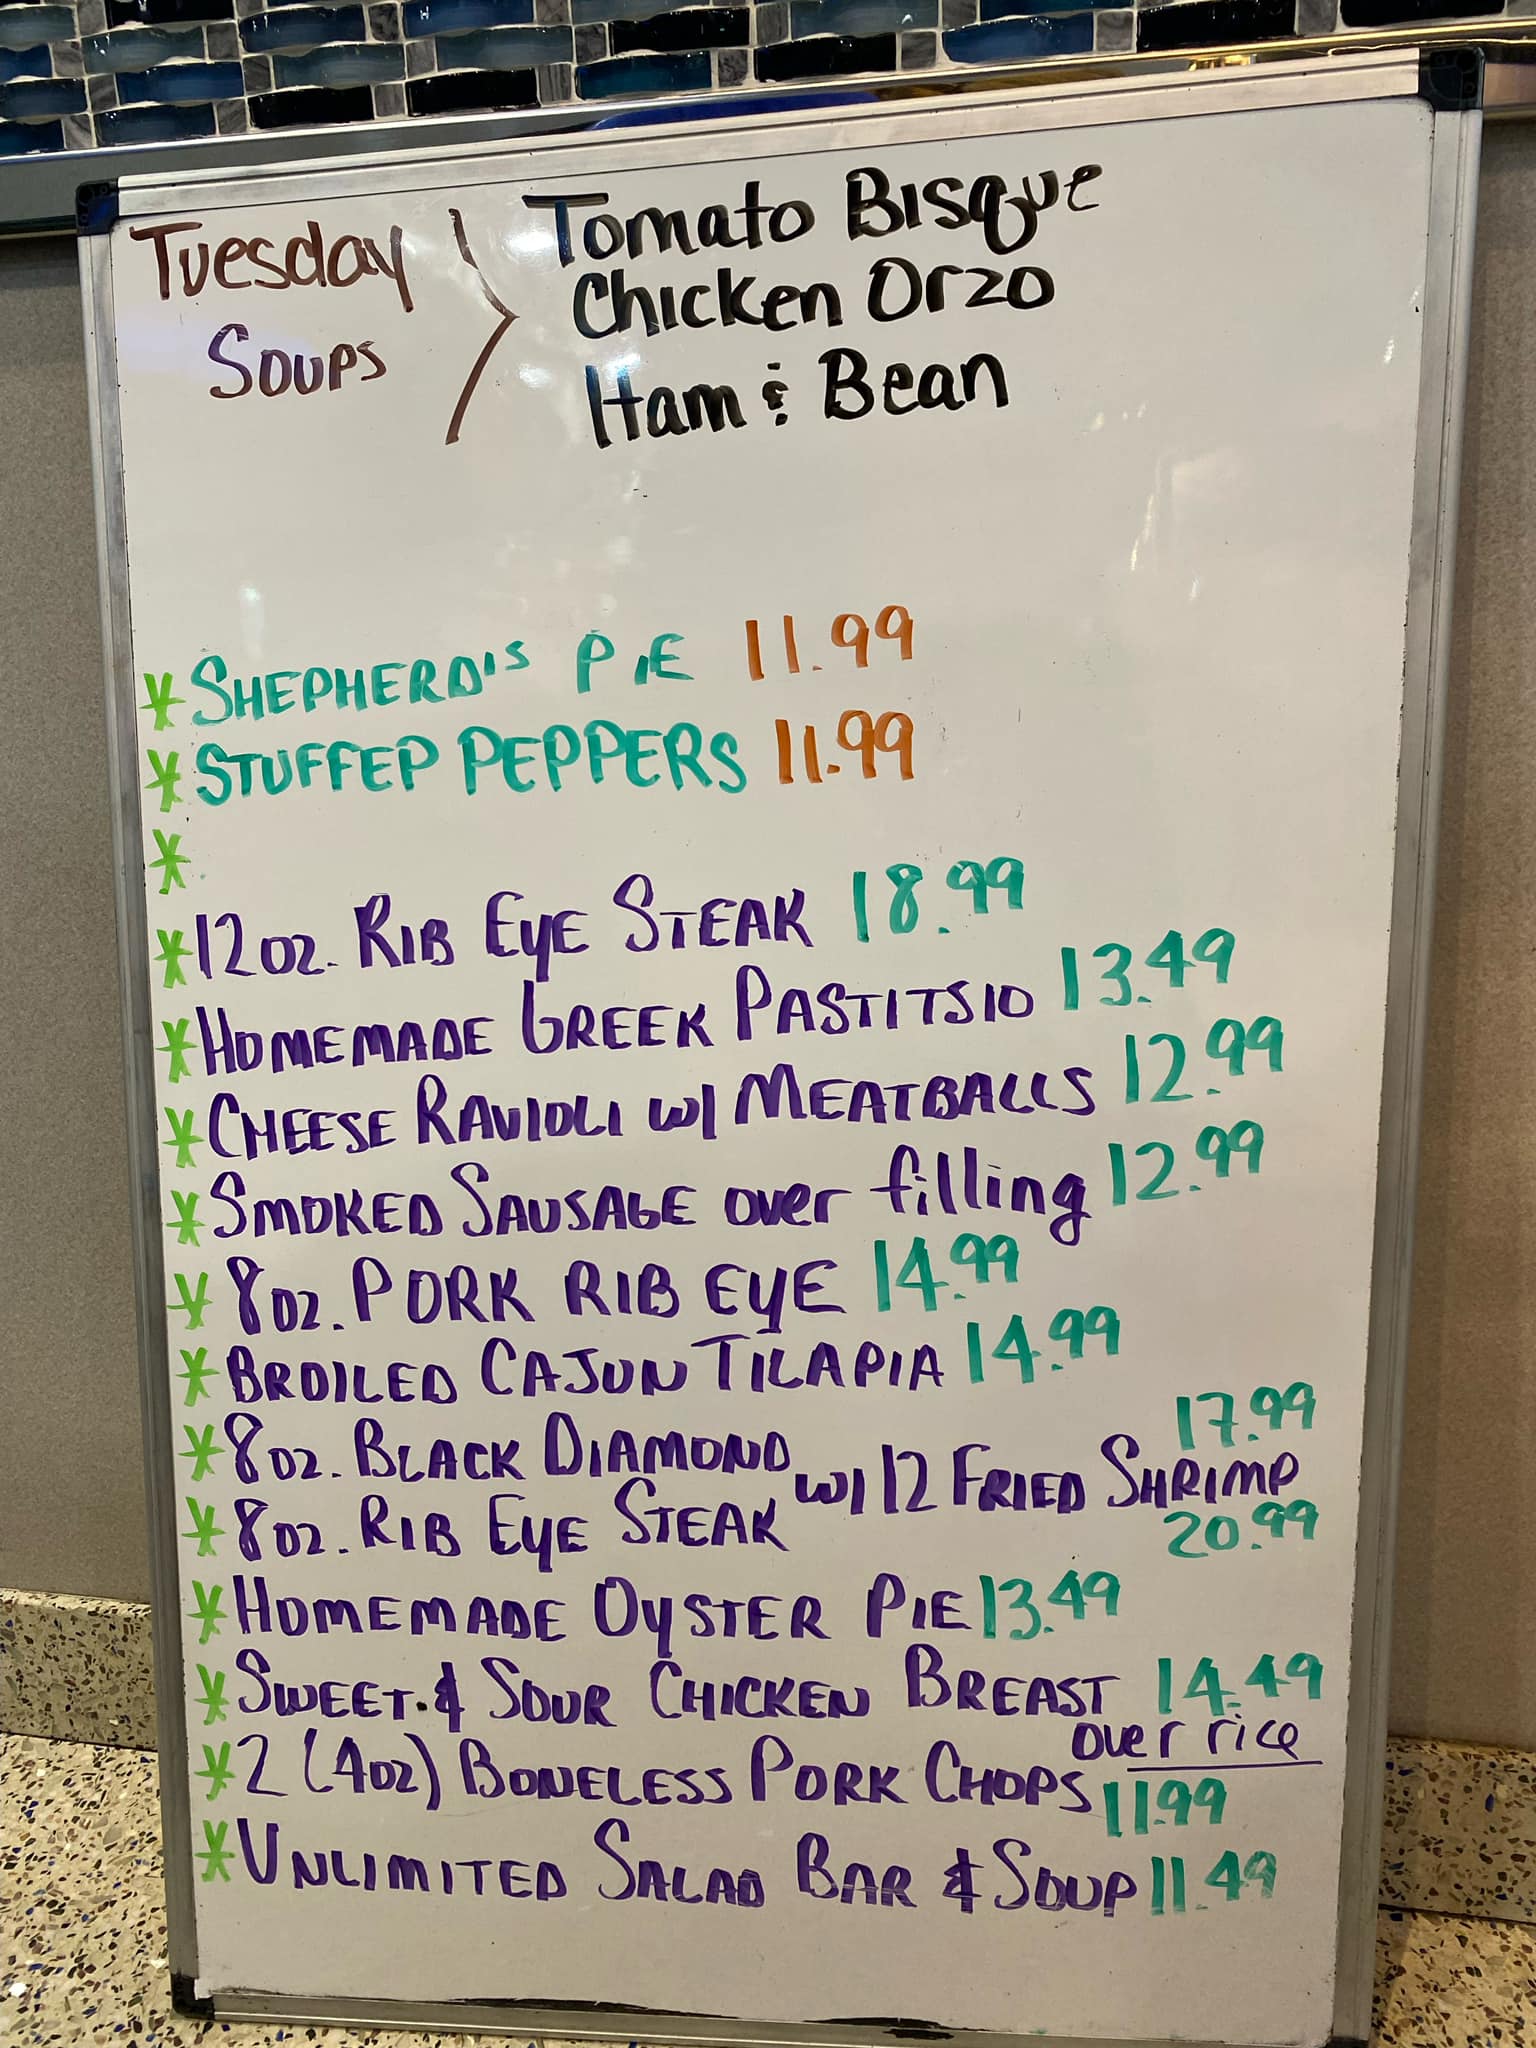 Tuesday Soups
Tomato Bisque
Chicken Orzo
Ham & Bean
* SHEPHERD'S PIE 11.99
* STUFFED PEPPERS 11.99
*
* 12 oz. RIB EYE STEAK 18.99
* HOMEMADE GREEK PASTITSIO 13.49
* CHEESE RAVIOLI w/ MEATBALLS 12.99
* SMOKED SAUSAGE over filling 12.99
* 8 oz. PORK RIB EYE 14.99
* BROILED CAJUN TILAPIA 14.99
* 8 oz. BLACK DIAMOND 17.99
w/ 12 FRIED SHRIMP
* 8 oz. RIB EYE STEAK 20.99
* HOMEMADE OYSTER PIE 13.49
* SWEET & SOUR CHICKEN BREAST 14.49
over rice
* 2 (4oz) BONELESS PORK CHOPS 11.99
* UNLIMITED SALAD BAR & SOUP 11.49